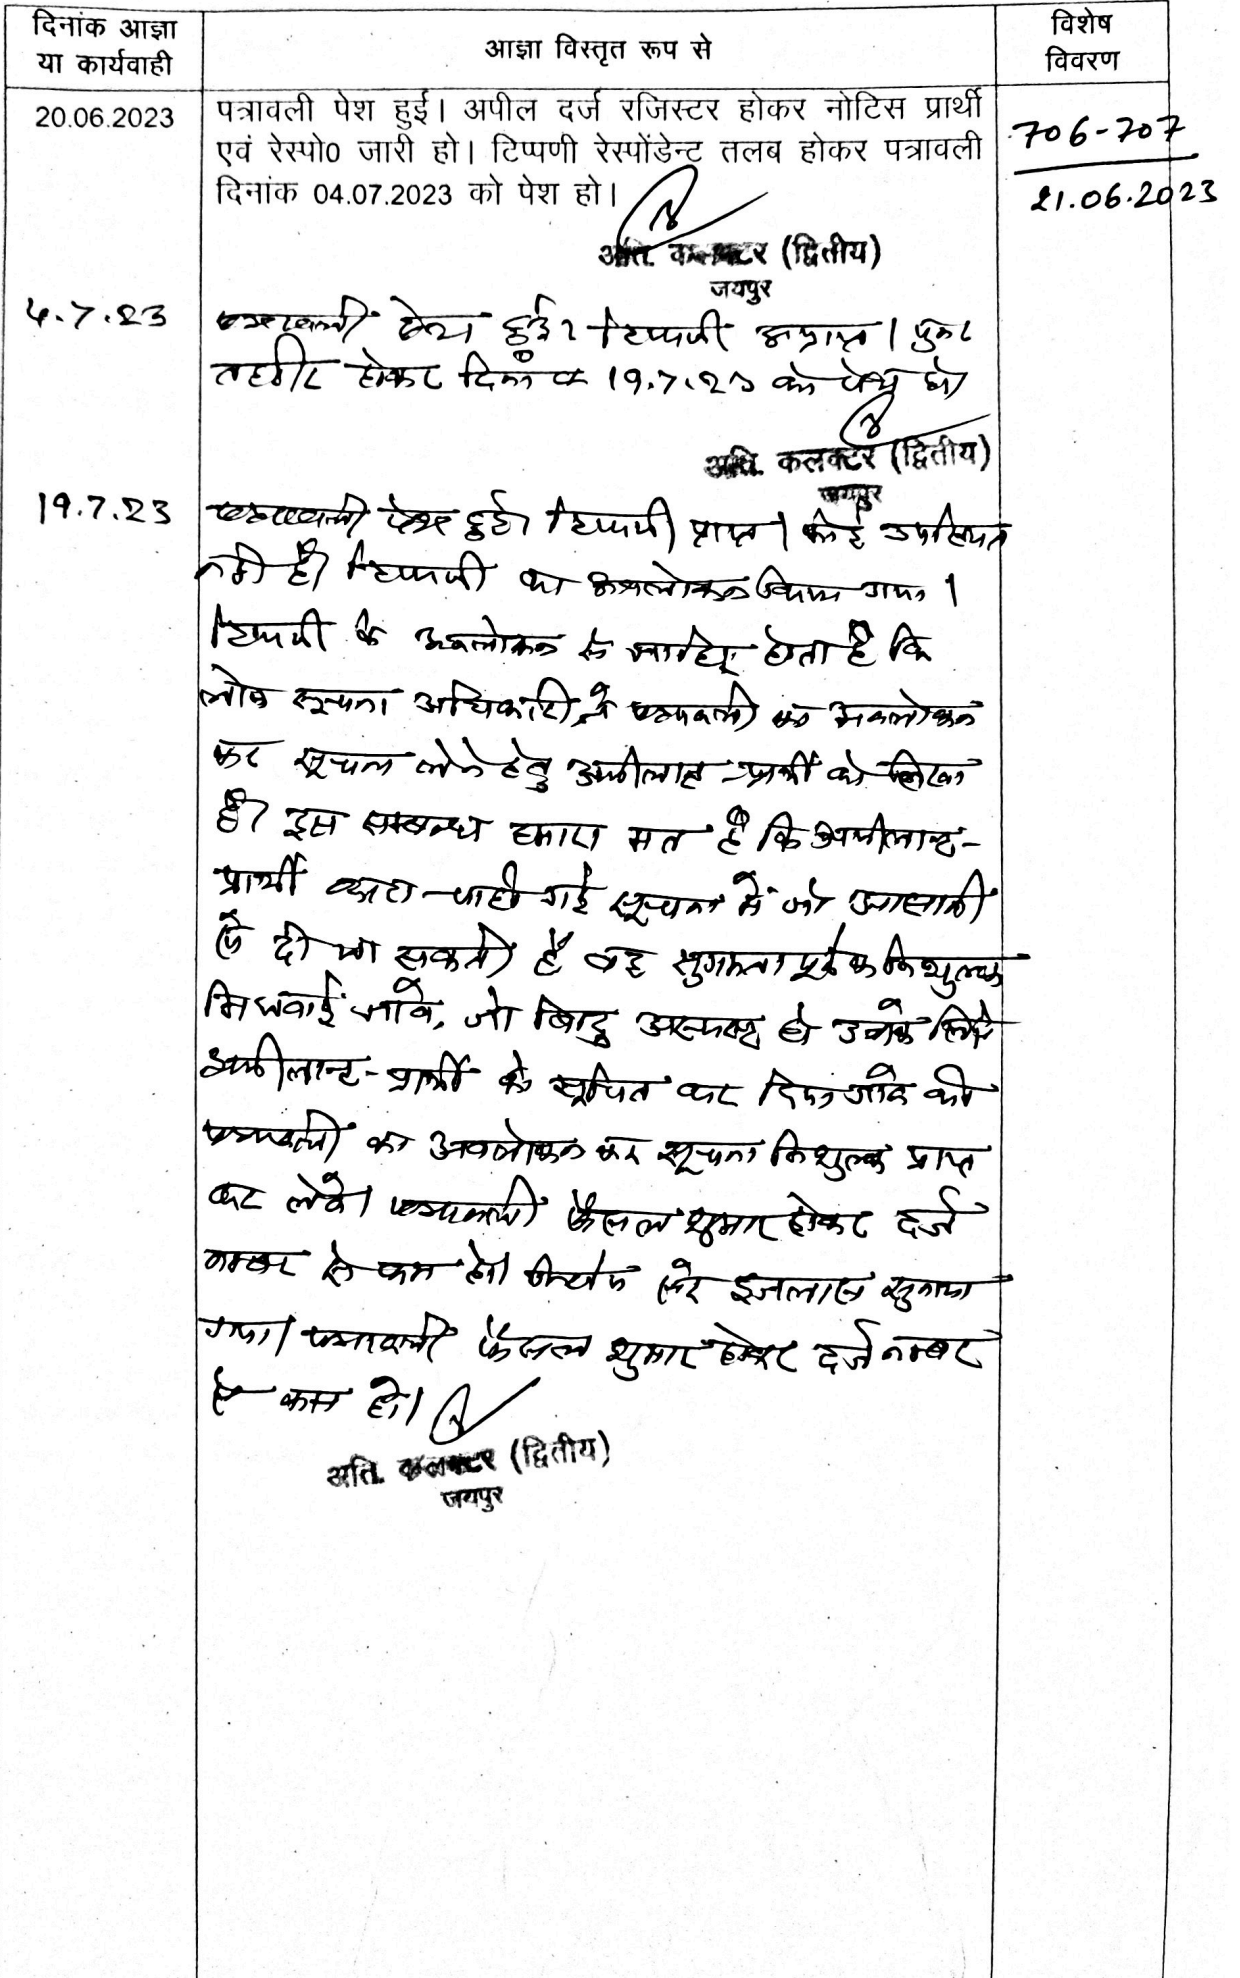 दिनांक आज्ञा
या कार्यवाही
आज्ञा विस्तृत रूप से
विशेष
विवरण
20.06.2023
पत्रावली पेश हुई। अपील दर्ज रजिस्टर होकर नोटिस प्रार्थी
एवं रेस्पो0 जारी हो। टिप्पणी रेस्पोंडेन्ट तलब होकर पत्रावली
दिनांक 04.07.2023 को पेश हो।
706-707
21.06.2023
अति. कलक्टर (द्वितीय)
जयपुर
4.7.23
पत्रावली पेश हुई। टिप्पणी अप्राप्त। पुनः
तहरीर होकर दिनांक 19.7.23 को पेश हो
अति. कलक्टर (द्वितीय)
जयपुर
19.7.23
पत्रावली पेश हुई। टिप्पणी प्राप्त। कोई उपस्थित
नही है। टिप्पणी का अवलोकन किया गया।
टिप्पणी के अवलोकन से जाहिर होता है कि
लोक सूचना अधिकारी ने पत्रावली का अवलोकन
कर सूचना लेने हेतु अपीलान्ट-प्रार्थी को लिखा
है। इस सम्बन्ध हमारा मत है कि अपीलान्ट-
प्रार्थी द्वारा चाही गई सूचना में जो आसानी
से दी जा सकती है वह सुगमता पूर्वक निशुल्क
भिजवाई जावे, जो बिन्दु अस्पष्ट हो उनके लिये
अपीलान्ट-प्रार्थी को सूचित कर दिया जावे की
पत्रावली का अवलोकन कर सूचना निशुल्क प्राप्त
कर लेवे। पत्रावली फैसल शुमार होकर दर्ज
नम्बर से कम हो। निर्णय सरे इजलास सुनाया
गया। पत्रावली फैसल शुमार होकर दर्ज नम्बर
से कम हो।
अति. कलक्टर (द्वितीय)
जयपुर